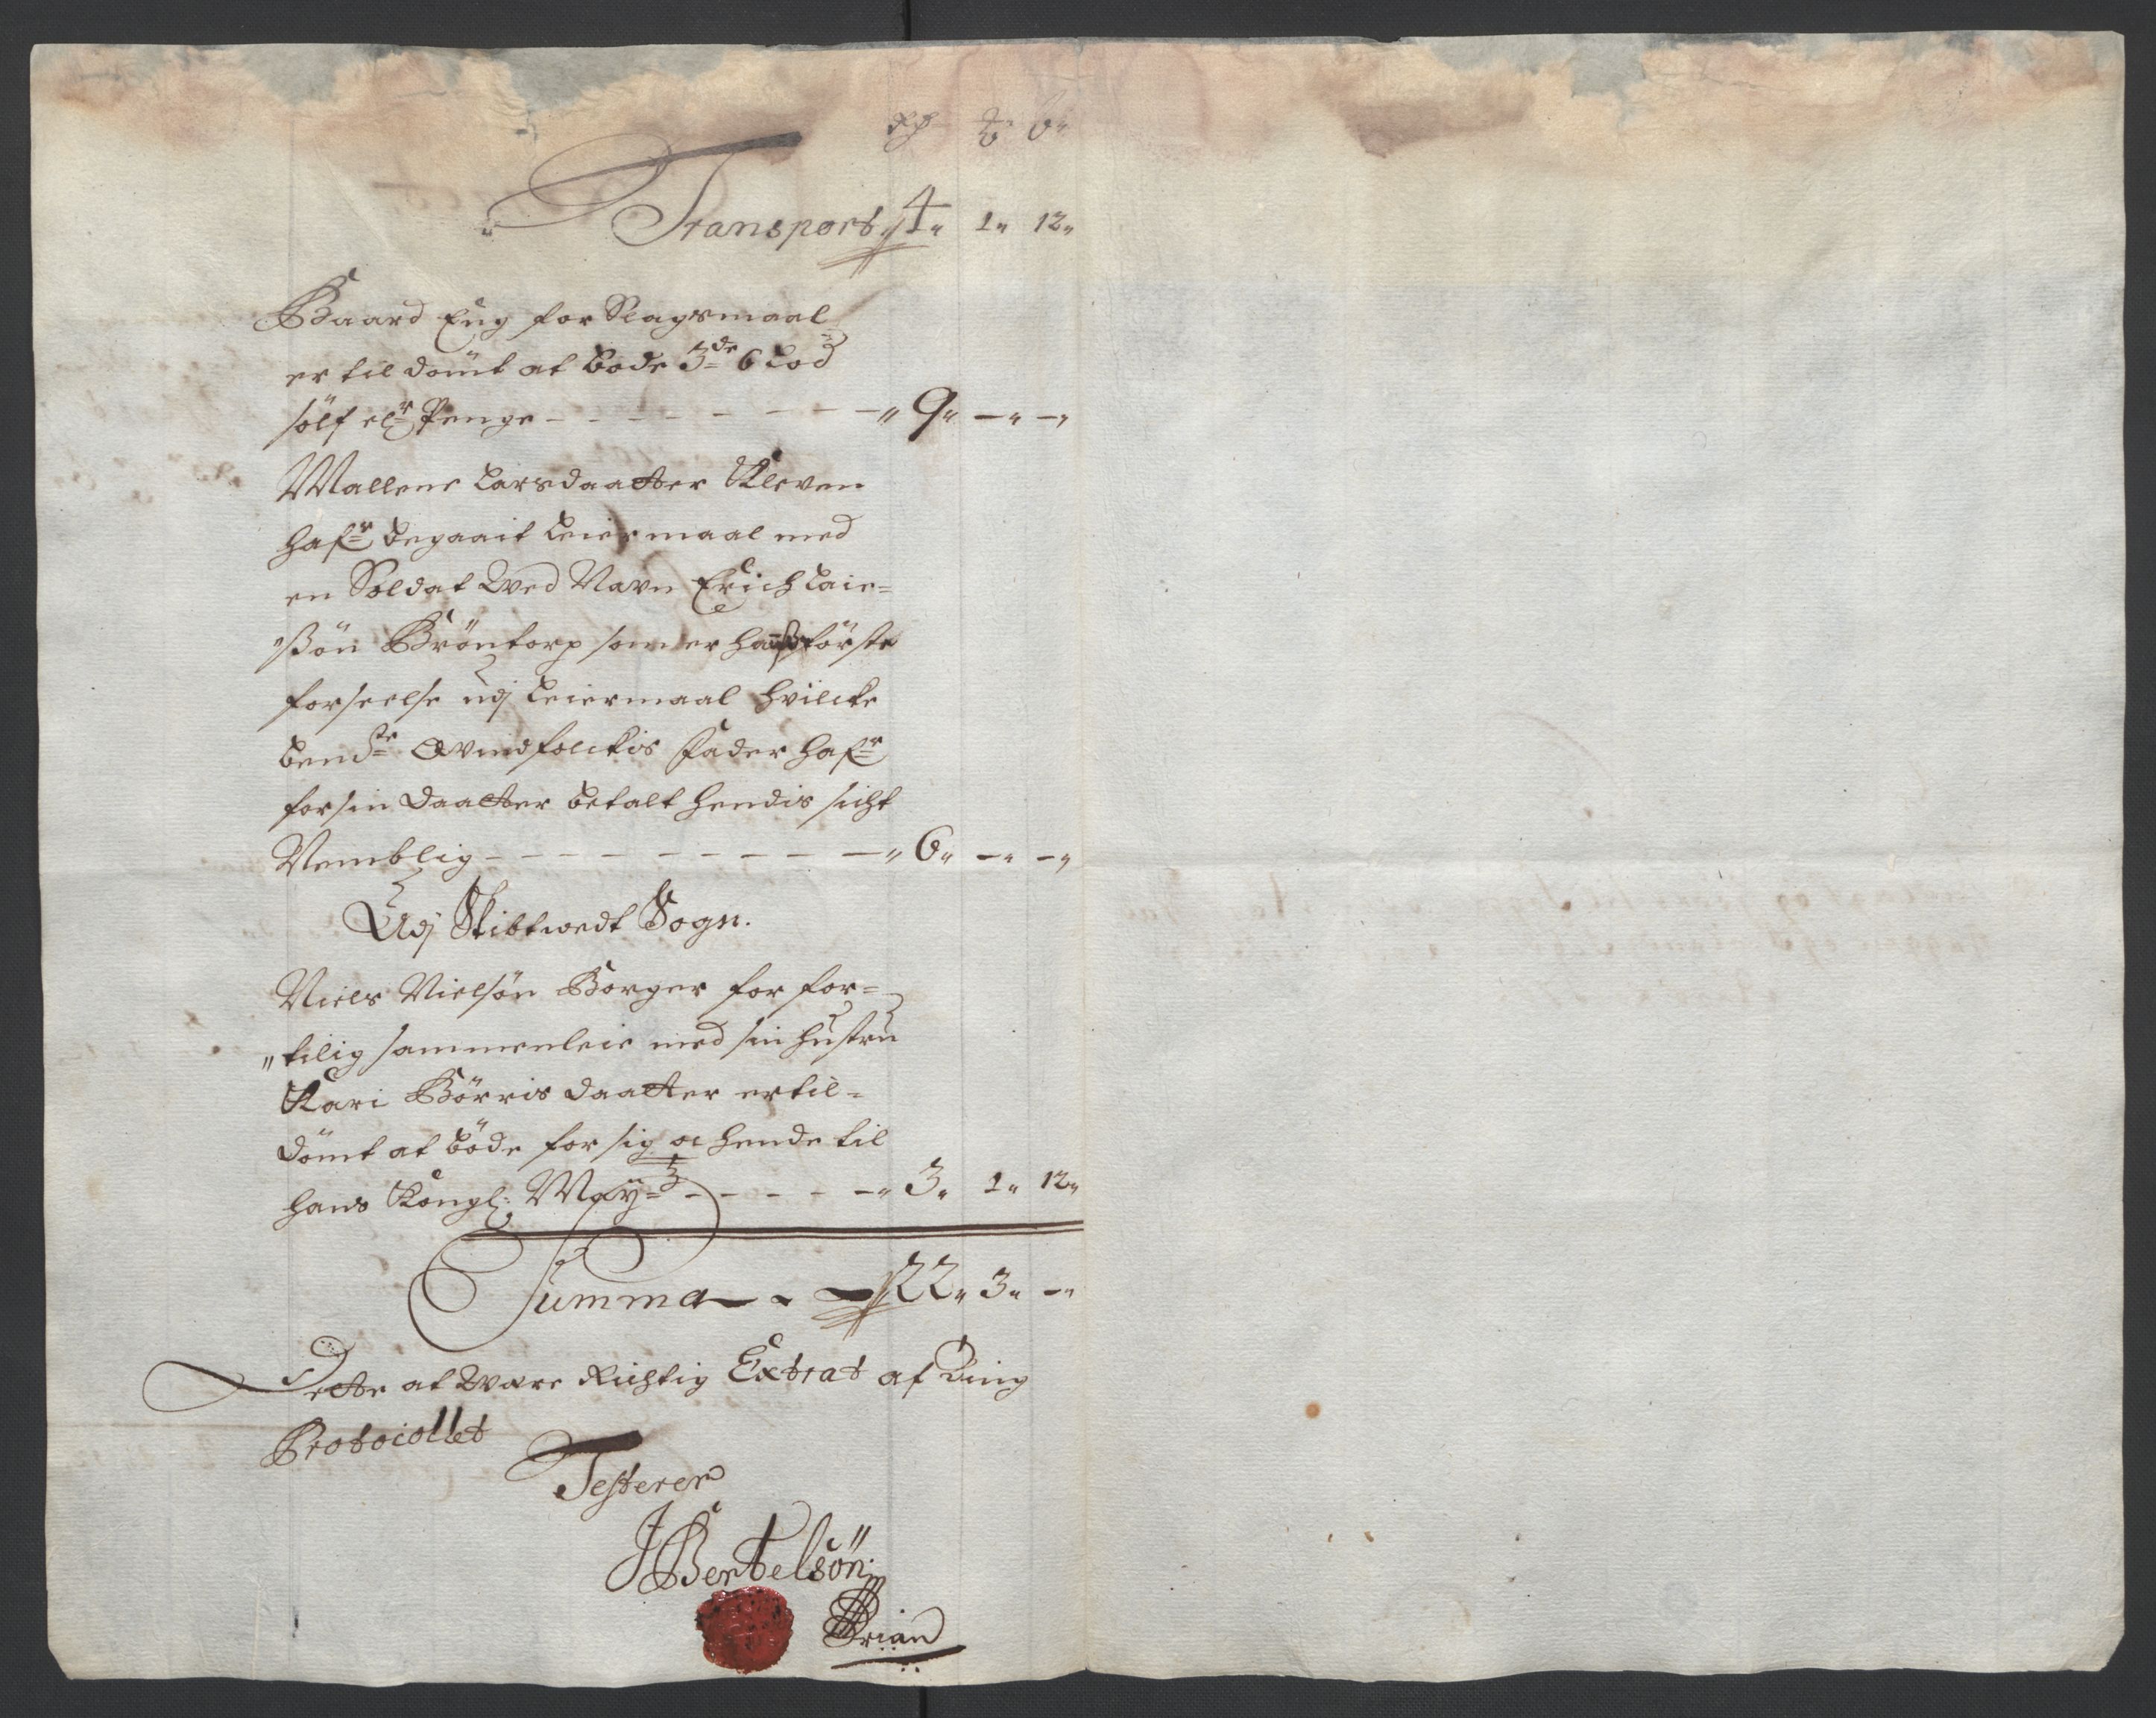 Rd ß
Transport 4" 1" 12"
Baard Eng for Slagsmaal
er til dömt at bode 3de 6 Lod
sölf elr Penge - - - - - - - " 9" -" -"
Mallene Larsdaatter Kleven
hafr begaait Leiermaal med
en Soldat Wed Navn Erich Laie=
"sßön Bröntorp som er hanß förste
forseelse udj Leiermaal hvilcke
bemte Qvindfolckis Fader hafr
for sin Daatter betalt hendis sicht
Nemblig - - - - - - - - - " 6" -" -"
Udj Skibtwedt Sogn.
Niels Nielsön Borger for for=
"tilig sammenleie med sin hustru
Kari Börris daatter er til=
dömt at böde for sig oc hende til
hans Kongl: Maÿt - - - - - " 3" 1" 12"
Summa - - - 22" 3" -"
Dette at Wære Richtig Extrat af Ting
Protocollet
Testerer
J Bertelsön